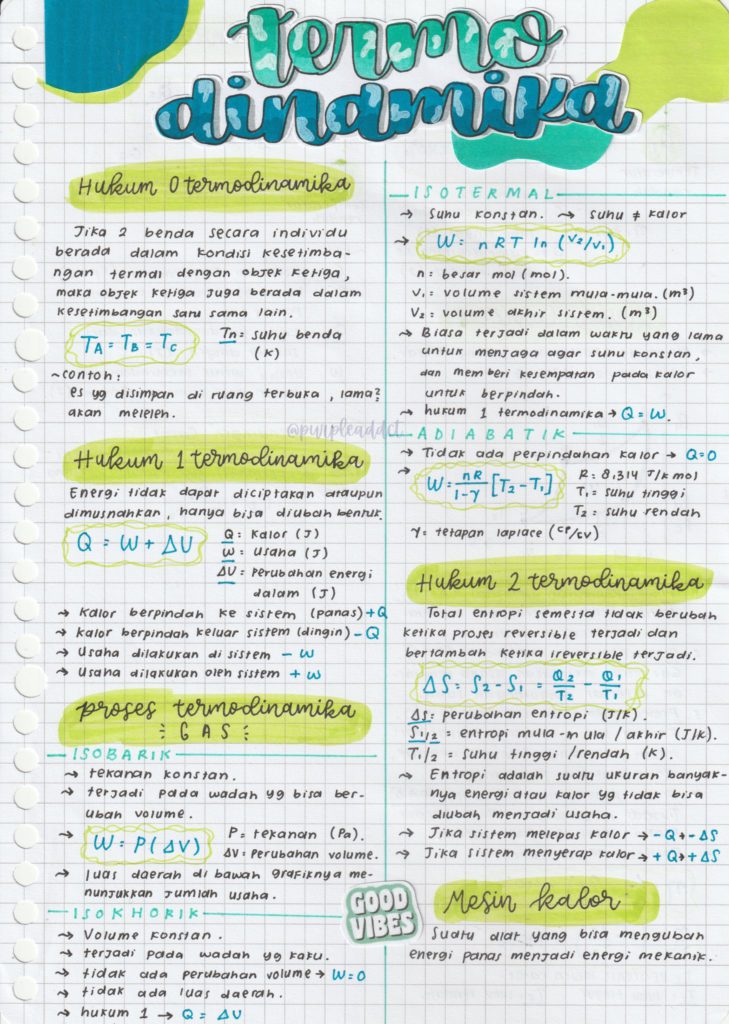 termo
dinamika
Hukum 0 termodinamika
Jika 2 benda secara individu
berada dalam kondisi kesetimba-
ngan termal dengan objek ketiga,
maka objek ketiga juga berada dalam
kesetimbangan satu sama lain.
TA = TB = TC
Tn = suhu benda
(K)
~contoh:
es yg disimpan di ruang terbuka, lama²
akan meleleh.
@purpleaddct
Hukum 1 termodinamika
Energi tidak dapat diciptakan ataupun
dimusnahkan, hanya bisa diubah bentuk.
Q = W + ΔU
Q = kalor (J)
W = usaha (J)
ΔU = perubahan energi
dalam (J)
→ kalor berpindah ke sistem (panas) +Q
→ kalor berpindah keluar sistem (dingin) -Q
→ Usaha dilakukan di sistem - W
→ Usaha dilakukan oleh sistem + W
proses termodinamika
GAS
ISOBARIK
→ tekanan konstan.
→ terjadi pada wadah yg bisa ber-
ubah volume.
→ W = P(ΔV)
P = tekanan (Pa).
ΔV = Perubahan volume.
→ luas daerah di bawah grafiknya me-
nunjukkan jumlah usaha.
ISOKHORIK
→ Volume konstan.
→ terjadi pada wadah yg kaku.
→ tidak ada perubahan volume → W=0
→ tidak ada luas daerah.
→ hukum 1 → Q = ΔU
GOOD
VIBES
ISOTERMAL
→ Suhu konstan. → suhu ≠ kalor
→ W = nRT ln (V2/V1)
n = besar mol (mol).
V1 = volume sistem mula-mula. (m³)
V2 = volume akhir sistem. (m³)
→ Biasa terjadi dalam waktu yang lama
untuk menjaga agar suhu konstan,
dan memberi kesempatan pada kalor
untuk berpindah.
→ hukum 1 termodinamika → Q = W.
ADIABATIK
→ Tidak ada perpindahan kalor → Q=0
→ W = nR/1-γ [T2 - T1]
R = 8,314 J/k mol
T1 = suhu tinggi
T2 = suhu rendah
γ = tetapan laplace (CP/CV)
Hukum 2 termodinamika
Total entropi semesta tidak berubah
ketika proses reversible terjadi dan
bertambah ketika ireversible terjadi.
ΔS = S2 - S1 = Q2/T2 - Q1/T1
ΔS = perubahan entropi (J/K).
S1/2 = entropi mula-mula / akhir (J/K).
T1/2 = suhu tinggi / rendah (K).
→ Entropi adalah suatu ukuran banyak-
nya energi atau kalor yg tidak bisa
diubah menjadi usaha.
→ Jika sistem melepas kalor → -Q → -ΔS
→ Jika sistem menyerap kalor → +Q → +ΔS
Mesin kalor
Suatu alat yang bisa mengubah
energi panas menjadi energi mekanik.